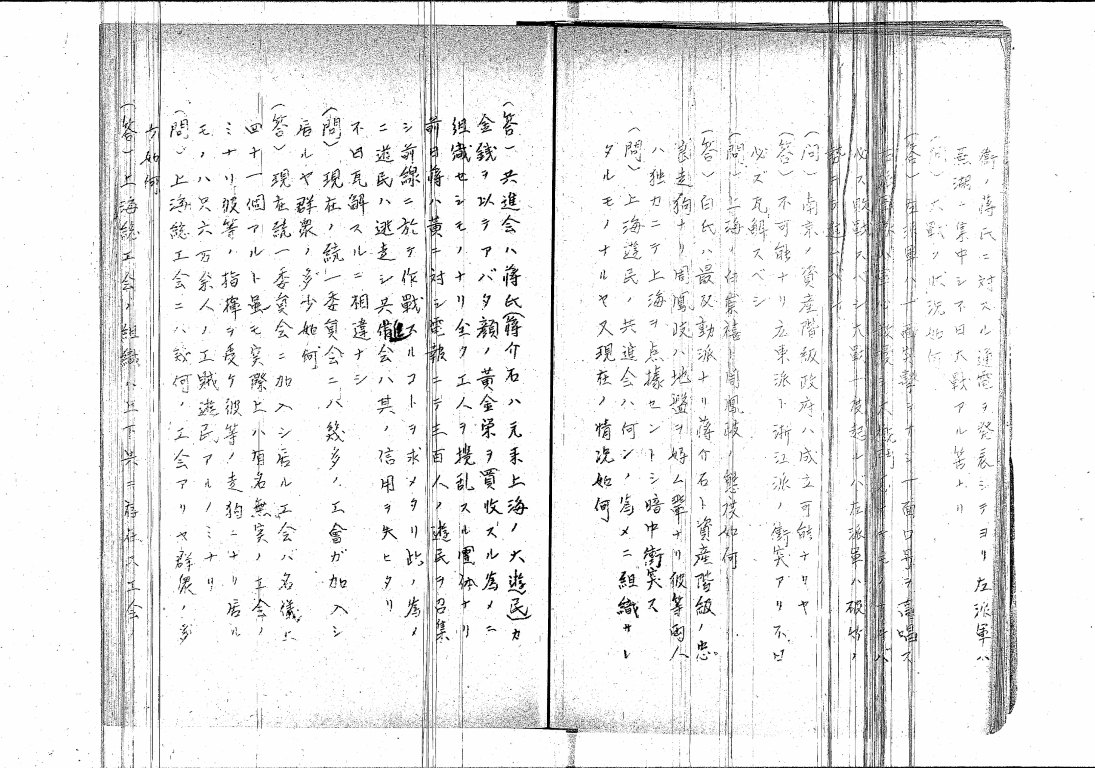 衛ノ蒋氏ニ対スル通電ヲ発表シテヨリ左派軍ハ
蕪湖ニ集中シ不日大戦アル筈ナリ
(問)大戦ノ状況如何
(答)左派軍ハ一面 一面口号ヲ宣唱ス
必ス敗戦スベシ大戦一度起レハ左派軍ハ破竹ノ
(問)南京ノ資産階級政府ハ成立可能ナリヤ
(答)不可能ナリ広東派ト浙江派ノ衝突アリ不日
必ズ瓦解スベシ
(問)上海ノ白崇禧ト周鳳岐ノ態度如何
(答)白氏ハ最反動派ナリ蒋介石ト資産階級ノ忠
良走狗ナリ周鳳岐ハ地盤ヲ好ム輩ナリ彼等両人
ハ独カニテ上海ヲ占據セントシ暗中衝突ス
(問)上海遊民ノ共進会ハ何ンノ為メニ組織サレ
タルモノナルヤ又現在ノ情况如何
(答)共進会ハ蒋氏(蒋介石ハ元来上海ノ大遊民)カ
金銭ヲ以テアバタ顔ノ黄金栄ヲ買收スル為メニ
組織セシモノナリ全ク工人ヲ攪乱スル団体ナリ
前日蒋ハ黄ニ対シ電報ニテ三百人ノ遊民ヲ召集
シ前線ニ於テ作戦スルコトヲ求メタリ此ノ為メ
ニ遊民ハ逃走シ共進会ハ其ノ信用ヲ失ヒタリ
不日瓦解スルニ相違ナシ
(問)現在ノ統一委員会ニハ幾多ノ工會ガ加入シ
居ルヤ群衆ノ多少如何
(答)現在統一委員会ニ加入シ居ル工会ハ名儀上
四十一個アルト虽モ実際上ハ有名無実ノ工会ノ
ミナリ彼等ノ指揮ヲ受ケ彼等ノ走狗ニナリ居ル
モノハ只六万余人ノ工賊遊民アルノミナリ
(問)上海総工会ニハ幾何ノ工会アリヤ群衆ノ多
少如何
(答)上海総工会ノ組織ハ上下共ニ存在ス工会ノ